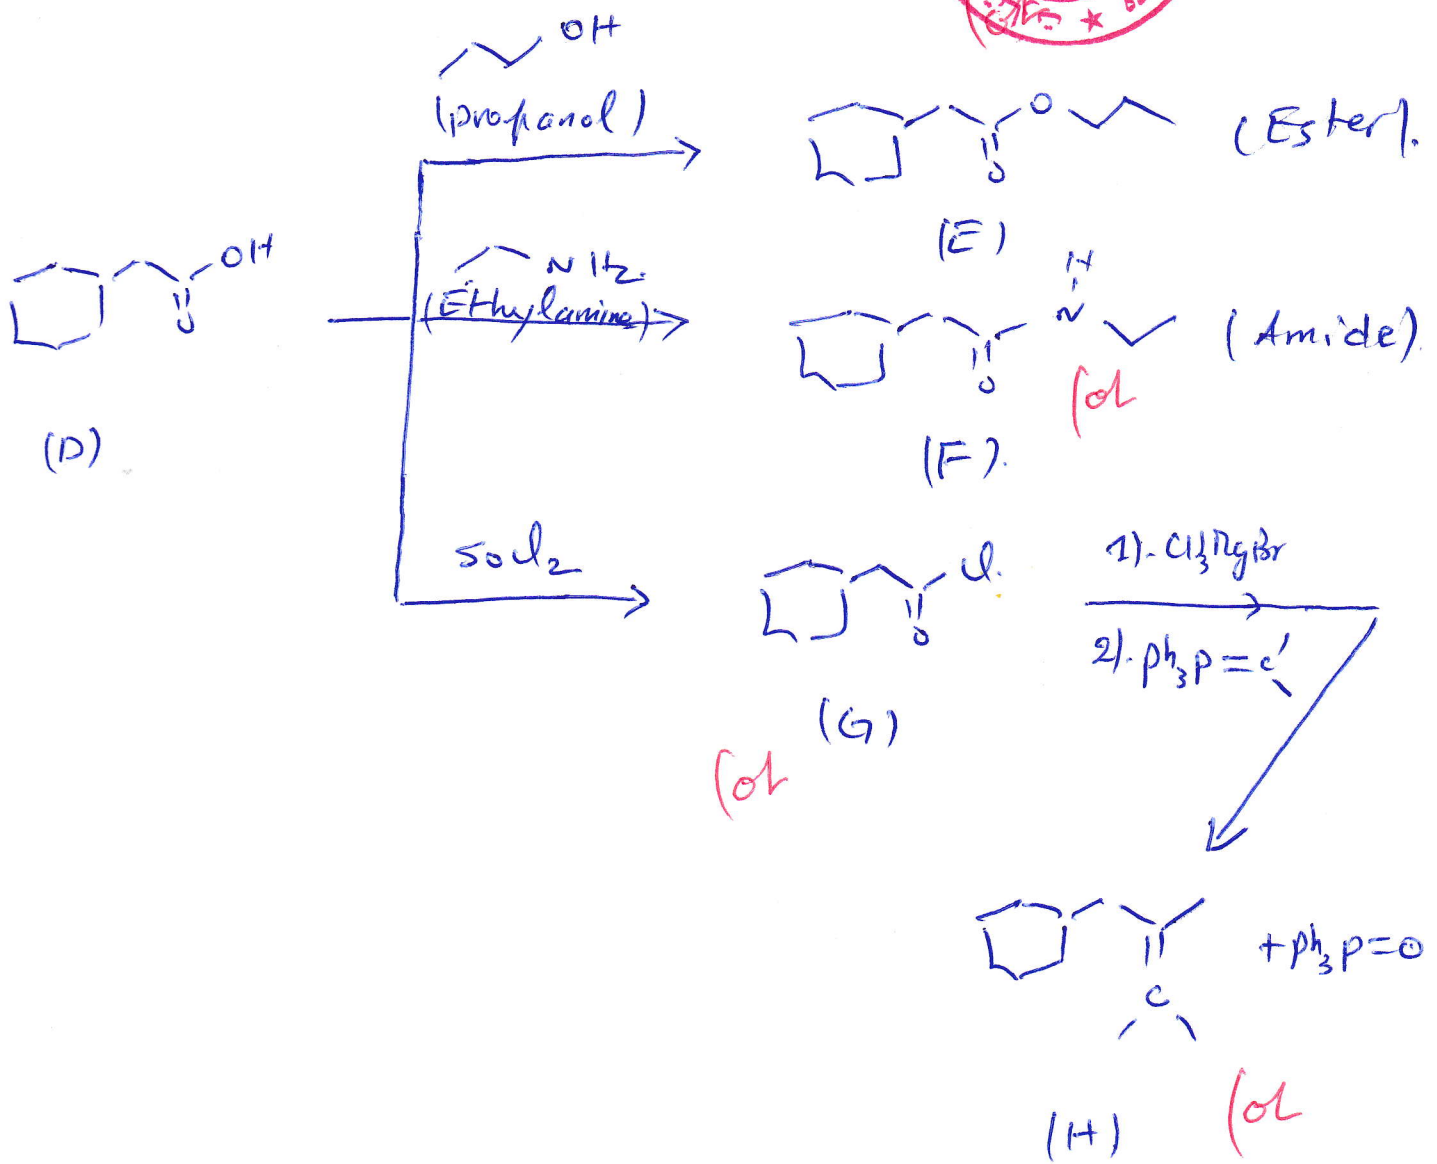 OH
(propanol)
O
O
(Ester).
(E)
OH
O
(D)
NH2.
(Ethylamine)
H
N
O
(Amide)
(F).
SOCl2
Cl.
O
(G)
1). CH3MgBr
2). ph3p=c
C
+ph3p=O
(H)